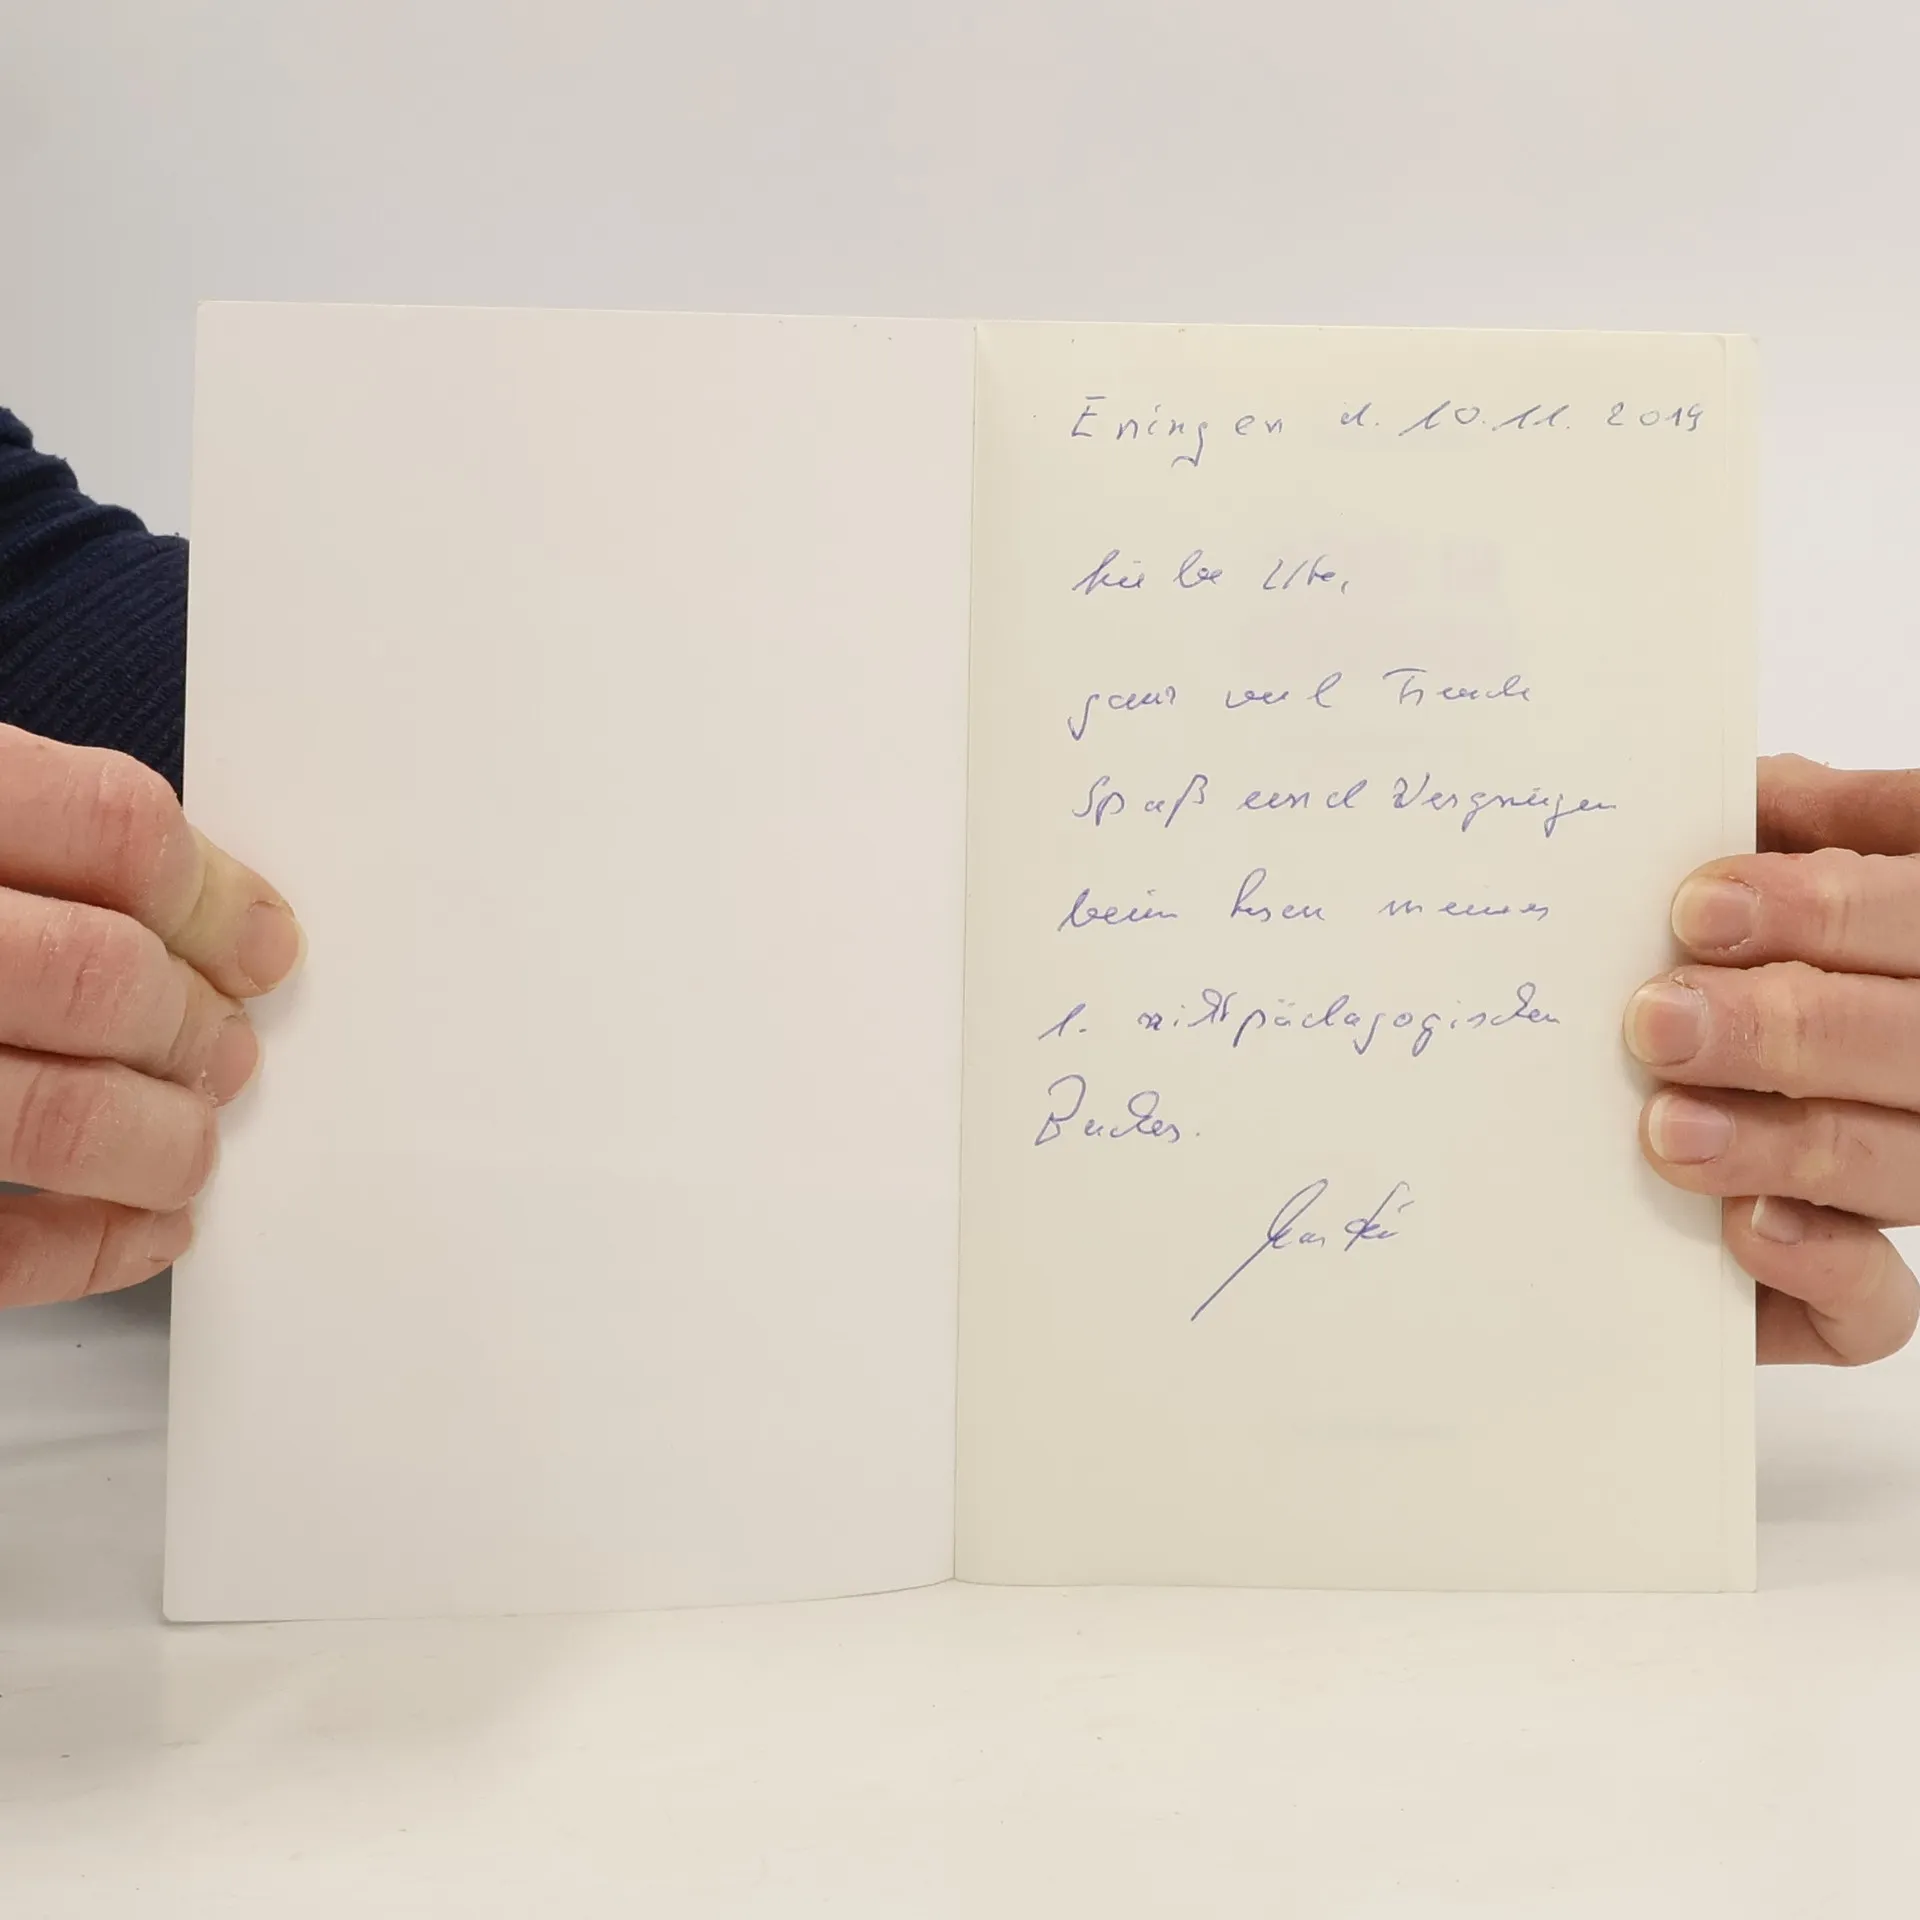 Eningen d. 10.11.2019
Liebe Ute,
ganz viel Freude
Spaß und Vergnügen
beim Lesen meines
1. nichtpädagogischen
Buches.